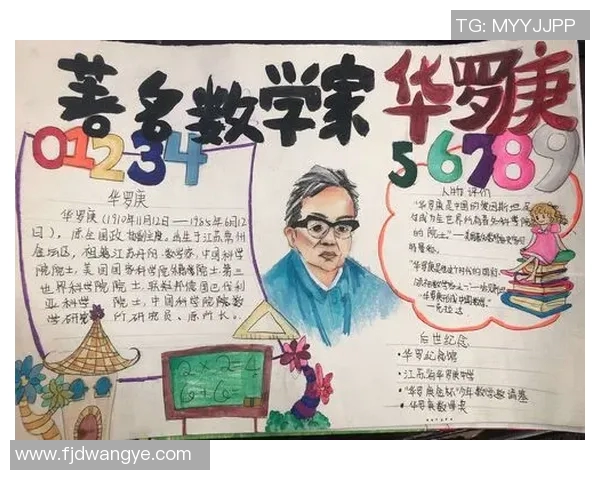 TG: MYYJJPP
著名数学家 华罗庚
01234
56789
华罗庚
华罗庚(1910年11月12日——1985年6月12
日),原全国政协副主席。出生于江苏常州
金坛区,祖籍江苏丹阳。数学家,中国科学
院院士,美国国家科学院外籍院士,第三
世界科学院院士,联邦德国巴伐利
亚科学院院士,中国科学院数
学研究所研究员、原所长。
人物评价
"华罗庚是中国的爱因斯坦,足
的院士。"
后世纪念
·华罗庚纪念馆
·江苏省华罗庚中学
·"华罗庚金杯"少年数学邀请赛
·华罗庚数学奖
2×2=4
6+6=
www.fjdwangye.com